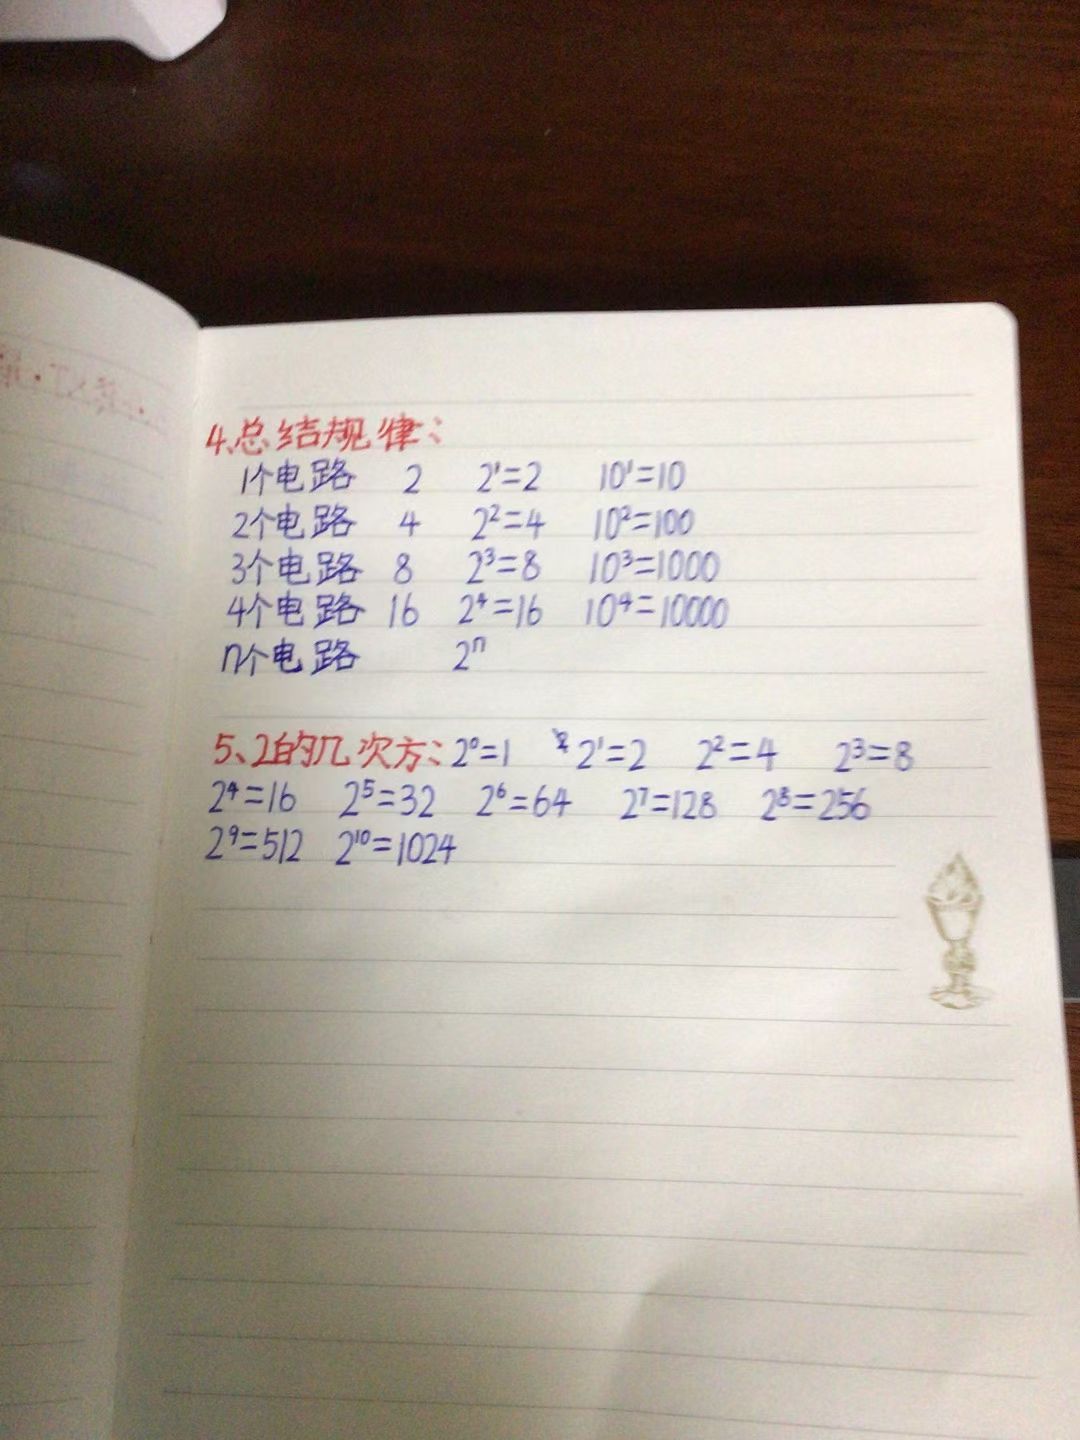 4、总结规律:
1个电路 2 2¹=2 10¹=10
2个电路 4 2²=4 10²=100
3个电路 8 2³=8 10³=1000
4个电路 16 2⁴=16 10⁴=10000
n个电路 2ⁿ
5、2的几次方: 2⁰=1 2¹=2 2²=4 2³=8
2⁴=16 2⁵=32 2⁶=64 2⁷=128 2⁸=256
2⁹=512 2¹⁰=1024